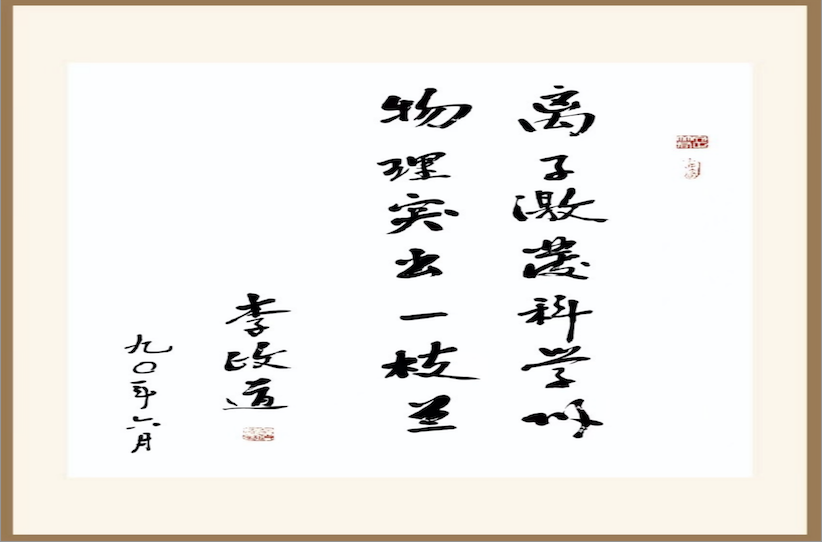 离子激發科学
物理突出一枝兰
李政道
九〇年六月